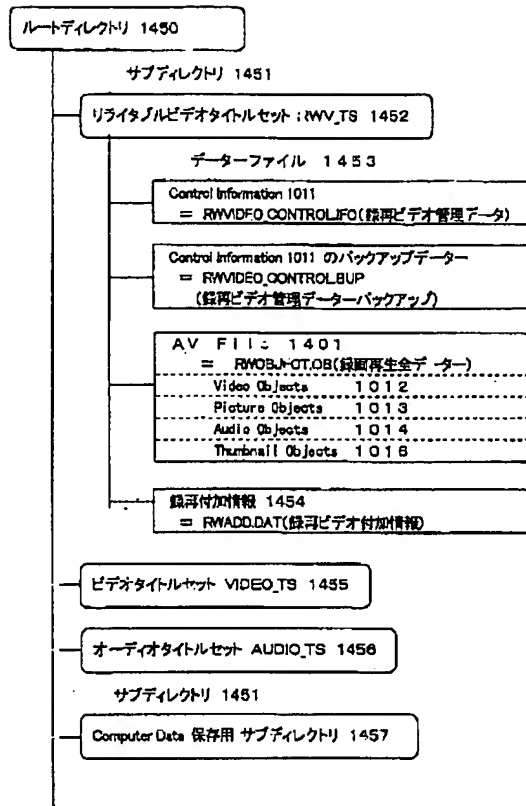 ルートディレクトリ 1450
サブディレクトリ 1451
リライタブルビデオタイトルセット : RWV_TS 1452
データーファイル 1453
Control Information 1011
= RWVIDEO_CONTROL.IFO(録再ビデオ管理データ)
Control Information 1011 のバックアップデーター
= RWVIDEO_CONTROL.BUP
(録再ビデオ管理データーバックアップ)
AV File 1401
= .OB(録画再生全データー)
Video Objects 1012
Picture Objects 1013
Audio Objects 1014
Thumbnail Objects 1016
録再付加情報 1454
= RWADD.DAT(録再ビデオ付加情報)
ビデオタイトルセット VIDEO_TS 1455
オーディオタイトルセット AUDIO_TS 1456
サブディレクトリ 1451
Computer Data 保存用 サブディレクトリ 1457